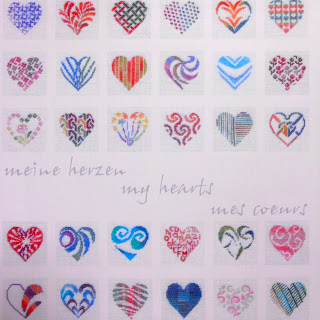 meine herzen
my hearts
mes coeurs